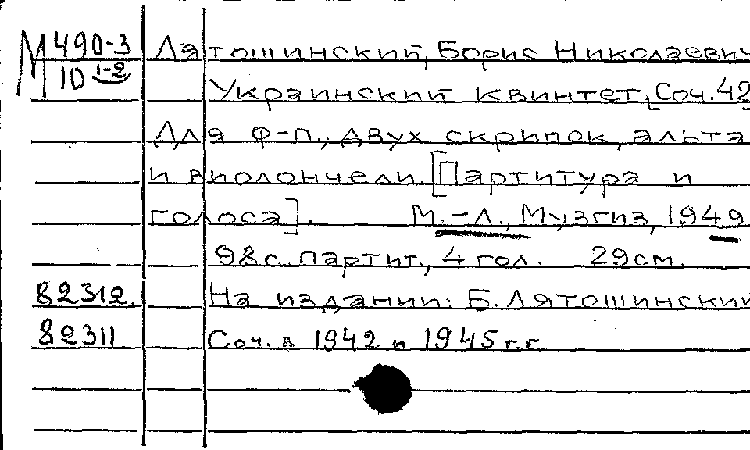 М 490-3 Лятошинский, Борис Николаевич
10 1-2 Украинский квинтет, [Соч. 42]
Для ф-п., двух скрипок, альта
и виолончели. [Партитура и
голоса]. М.-Л., Музгиз, 1949
98 с. партит., 4 гол. 29 см.
82312. На издании: Б. Лятошинский
82311 Соч. в 1942 и 1945 г.г.